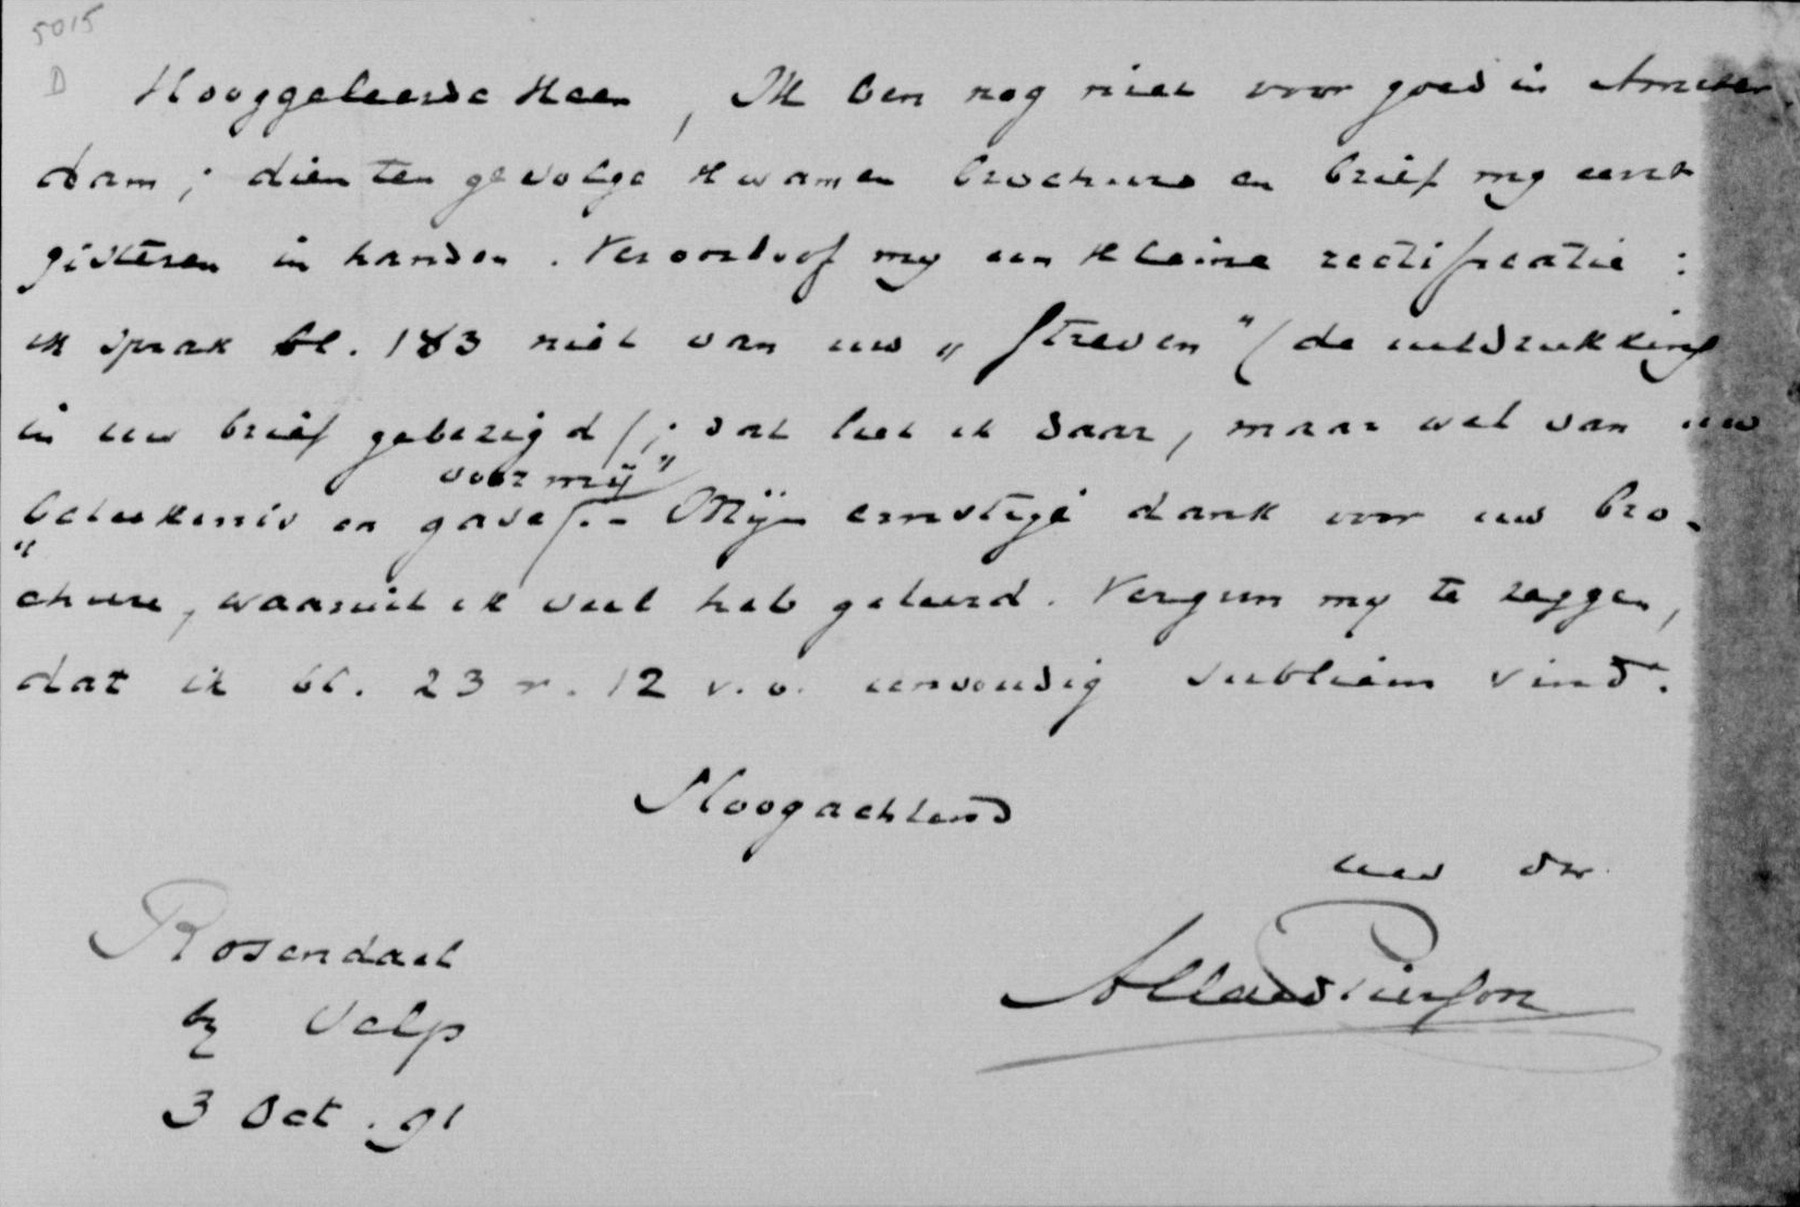 5015
D
Hooggeleerde Heer, Ik ben nog niet voor goed in Amster-
dam; dien ten gevolge kwamen brochure en brief my eerst
gisteren in handen. Veroorloof my een kleine rectificatie:
ik sprak bl. 183 niet van uw „streven" (de uitdrukking
in uw brief gebezigd); dat liet ik daar, maar wel van uw
voor mij"
„beteekenis en gave". - Mijn ernstige dank voor uw bro-
chure, waaruit ik veel heb geleerd. Vergun my te zeggen,
dat ik bl. 23 r. 12 v. o. eenvoudig subliem vind.
Hoogachtend
uw dr
Allard Pierson
Rosendaal
by Velp
3 Oct. 91